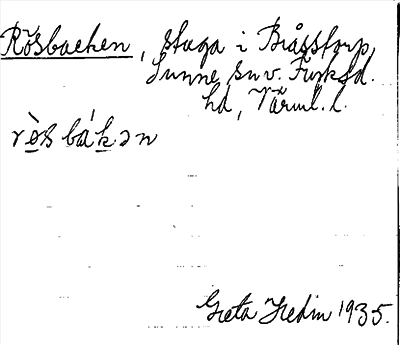 Rösbacken, stuga i Bråstorp,
Sunne sn v. Fryksd.
hd, Värml. l.
rø̀s bákən
Greta Hedin 1935.